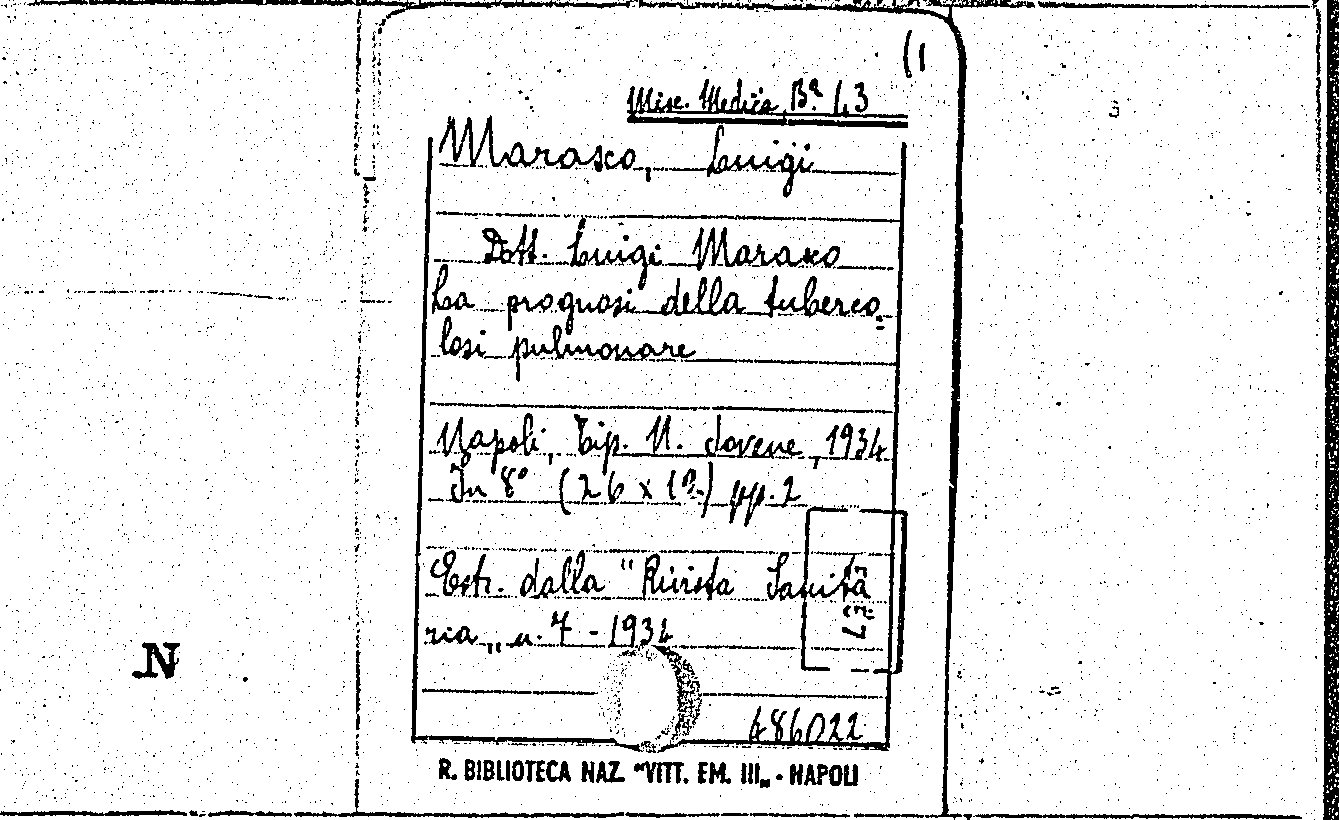 (1
Misc. Medica Bª. 1,3
Marasco, Luigi
Dott. Luigi Marasco
La prognosi della tuberco=
losi pulmonare
Napoli, Tip. N. Jovene, 1934
In 8° (26 x 1 ) pp. 2
Estr. dalla "Rivista Sanita
ria„ n. 7 - 1934
486022
R. BIBLIOTECA NAZ. "VITT. EM. III„ - NAPOLI
N